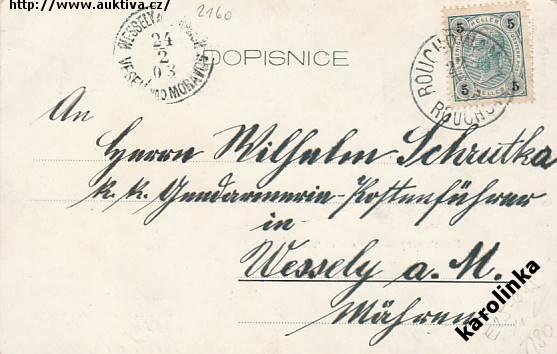 http://www.auktiva.cz/
2160
WESSELY A. D. MARCH
24
2
03
VESELÍ NAD MORAVOU
DOPISNICE
5 HELLER 5
5 HELLER 5
ROUCHOWAN
ROUCHOVANY
An
Herrn Wilhelm Schrutka
k. k. Gendarmerie-Postenführer
in
Wessely a. M.
Mähren
karolinka